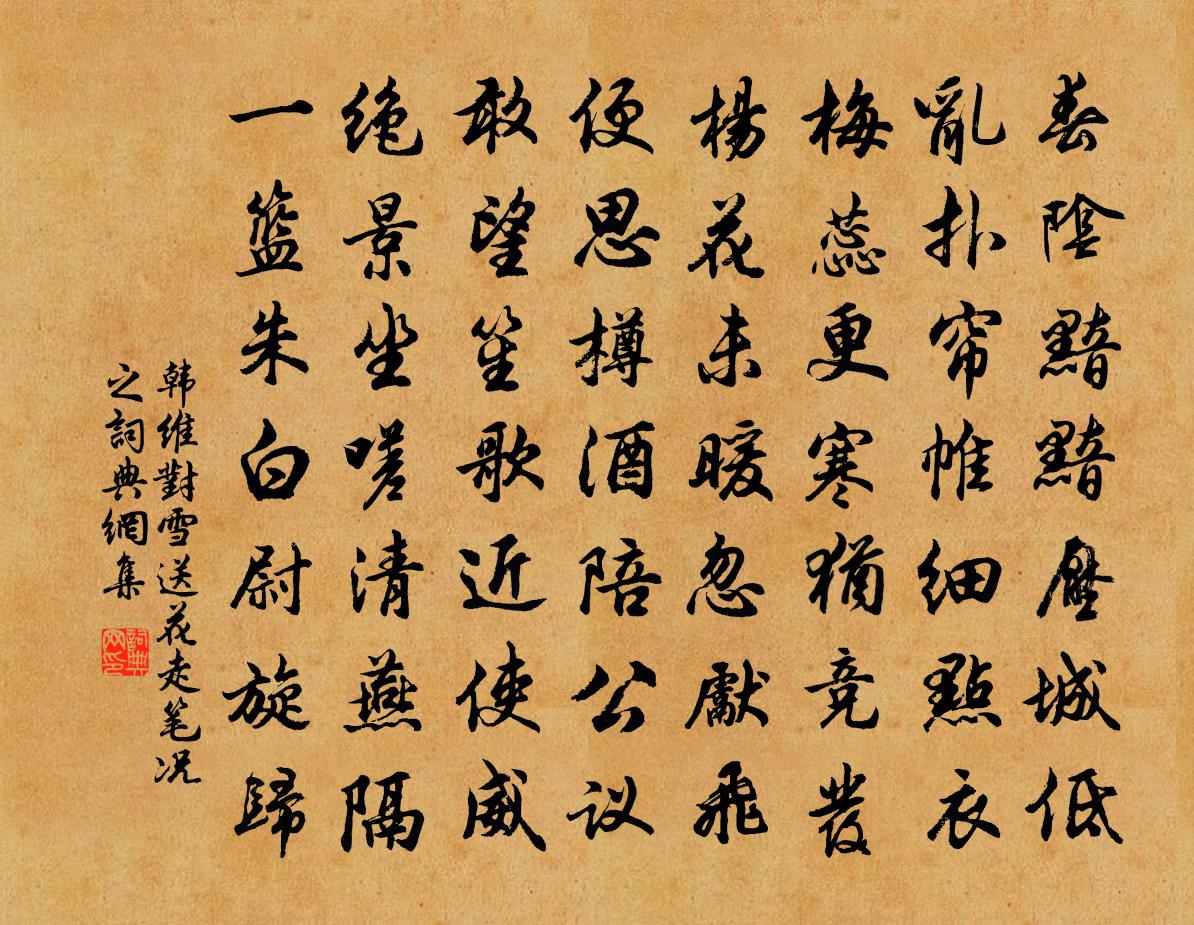 春陰黯黯壓城低
亂扑帘帷细點衣
梅蕊更寒猶竞發
楊花未暖忽獻飛
便思樽酒陪公议
敢望笙歌近使威
绝景坐嗟清燕隔
一籃朱白尉旋歸
韩維對雪送花走笔况
之詞典網集
詞典
网印